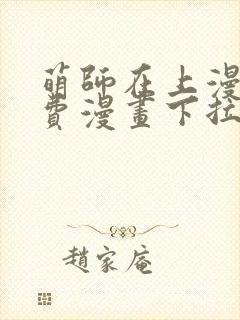 萌師在上漫
費漫畫下拉
趙家庵